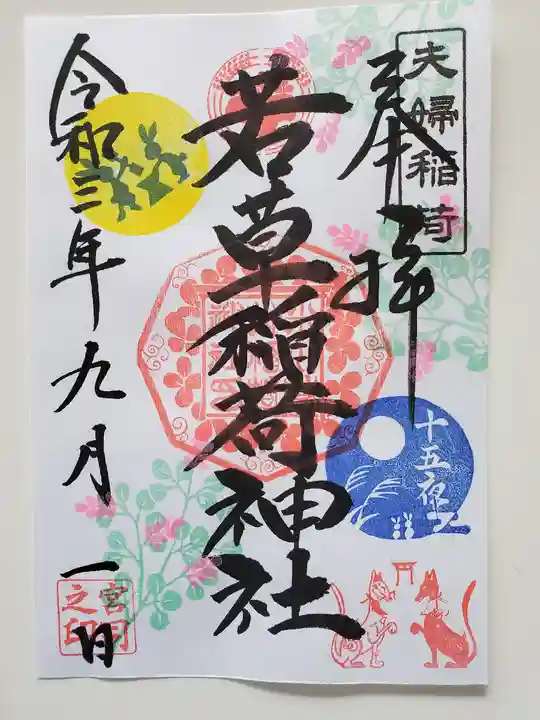 夫婦稲荷
奉拝
十五夜
若草稲荷神社
令和三年九月一日
宮司
之印